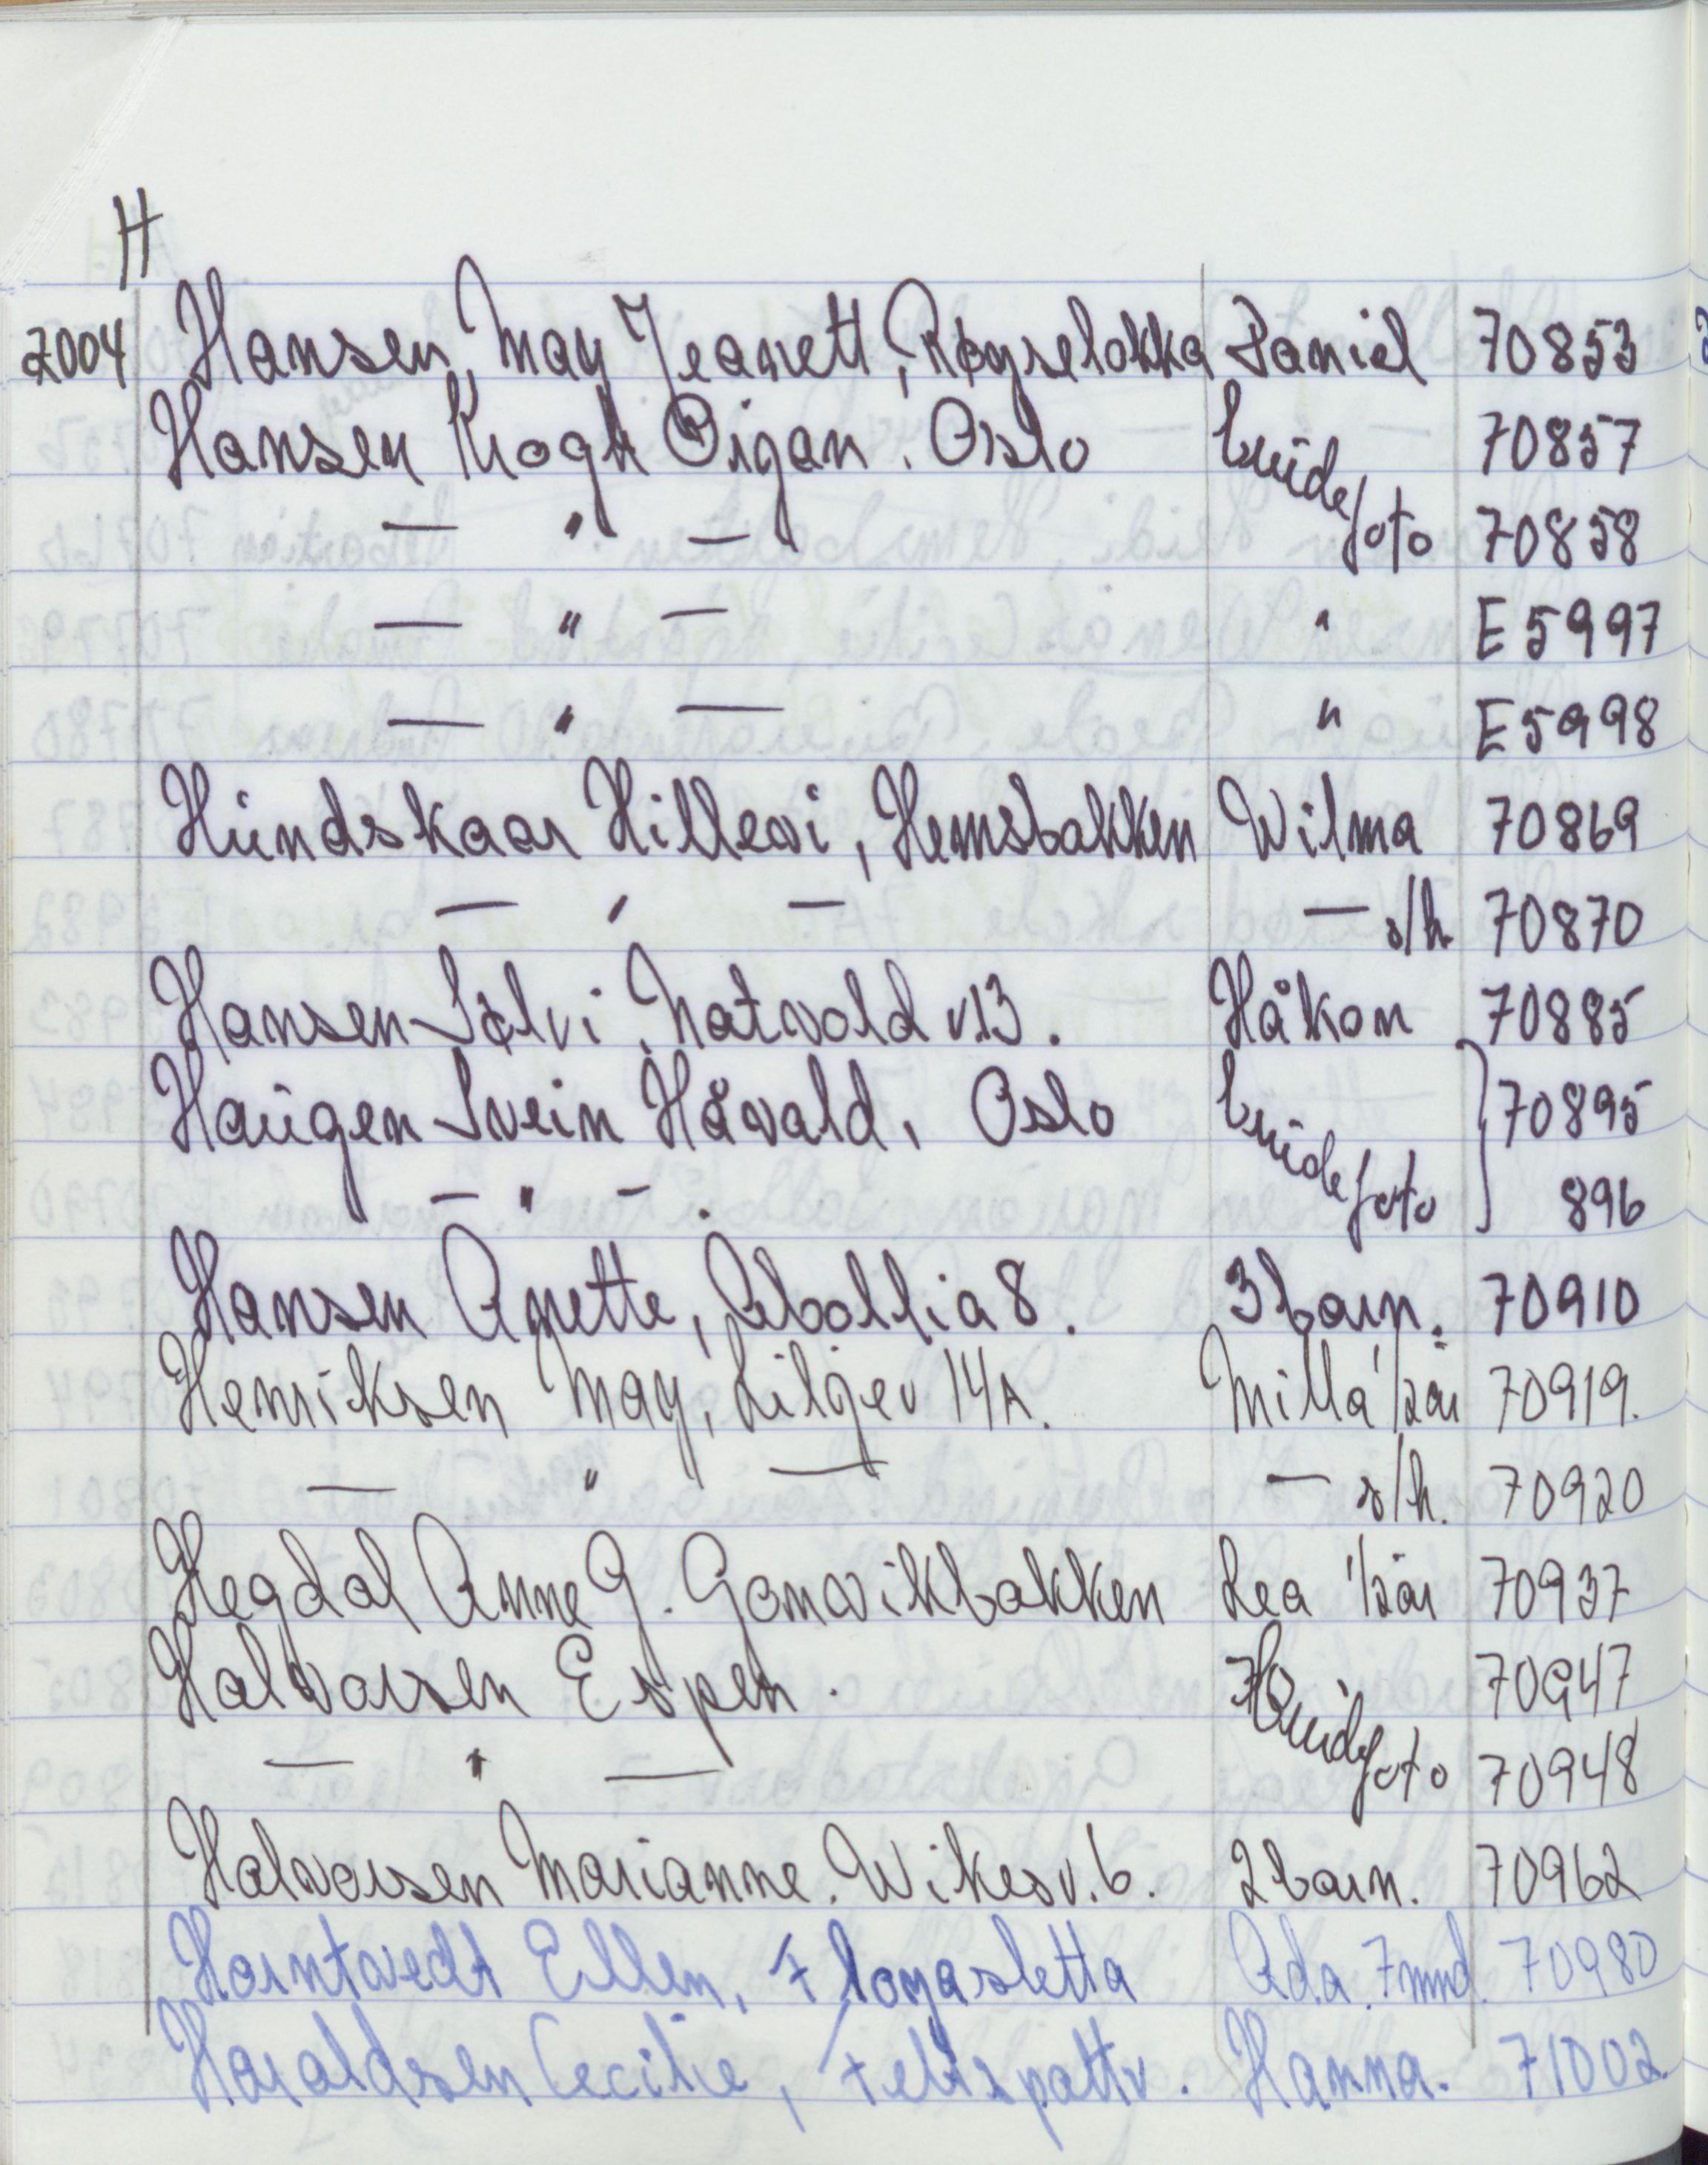 H
2004 Hansen, May Jeanett, Røyseløkka Daniel 70853
Hansen Krogh Ørjan. Oslo brudefoto 70857
— " — 70858
— " — " E 5997
— " — " E 5998
Hundskaar Hillevi, Hemsbakken Wilma 70869
— " — — s/h 70870
Hansen Sølvi, Natvold v13. Håkon 70885
Haugen Svein Håvald, Oslo brudefoto 70895
— " — 896
Hansen Anette, 8. 3 barn. 70910
Henriksen May, Liljev 14A. Milla 1/2 år 70919.
— " — — s/h. 70920
Hegdal Anne G. Gonvikbakken Lea 1/2 år 70937
Halvorsen Espen. Brudefoto 70947
— " — 70948
Halvorsen Marianne. Wikesv. 6. 2 barn. 70962
Horntvedt Ellen, Flogasletta Ada. 7 mnd. 70980
Haraldsen Cecilie, Feltspattv. Hanna. 71002